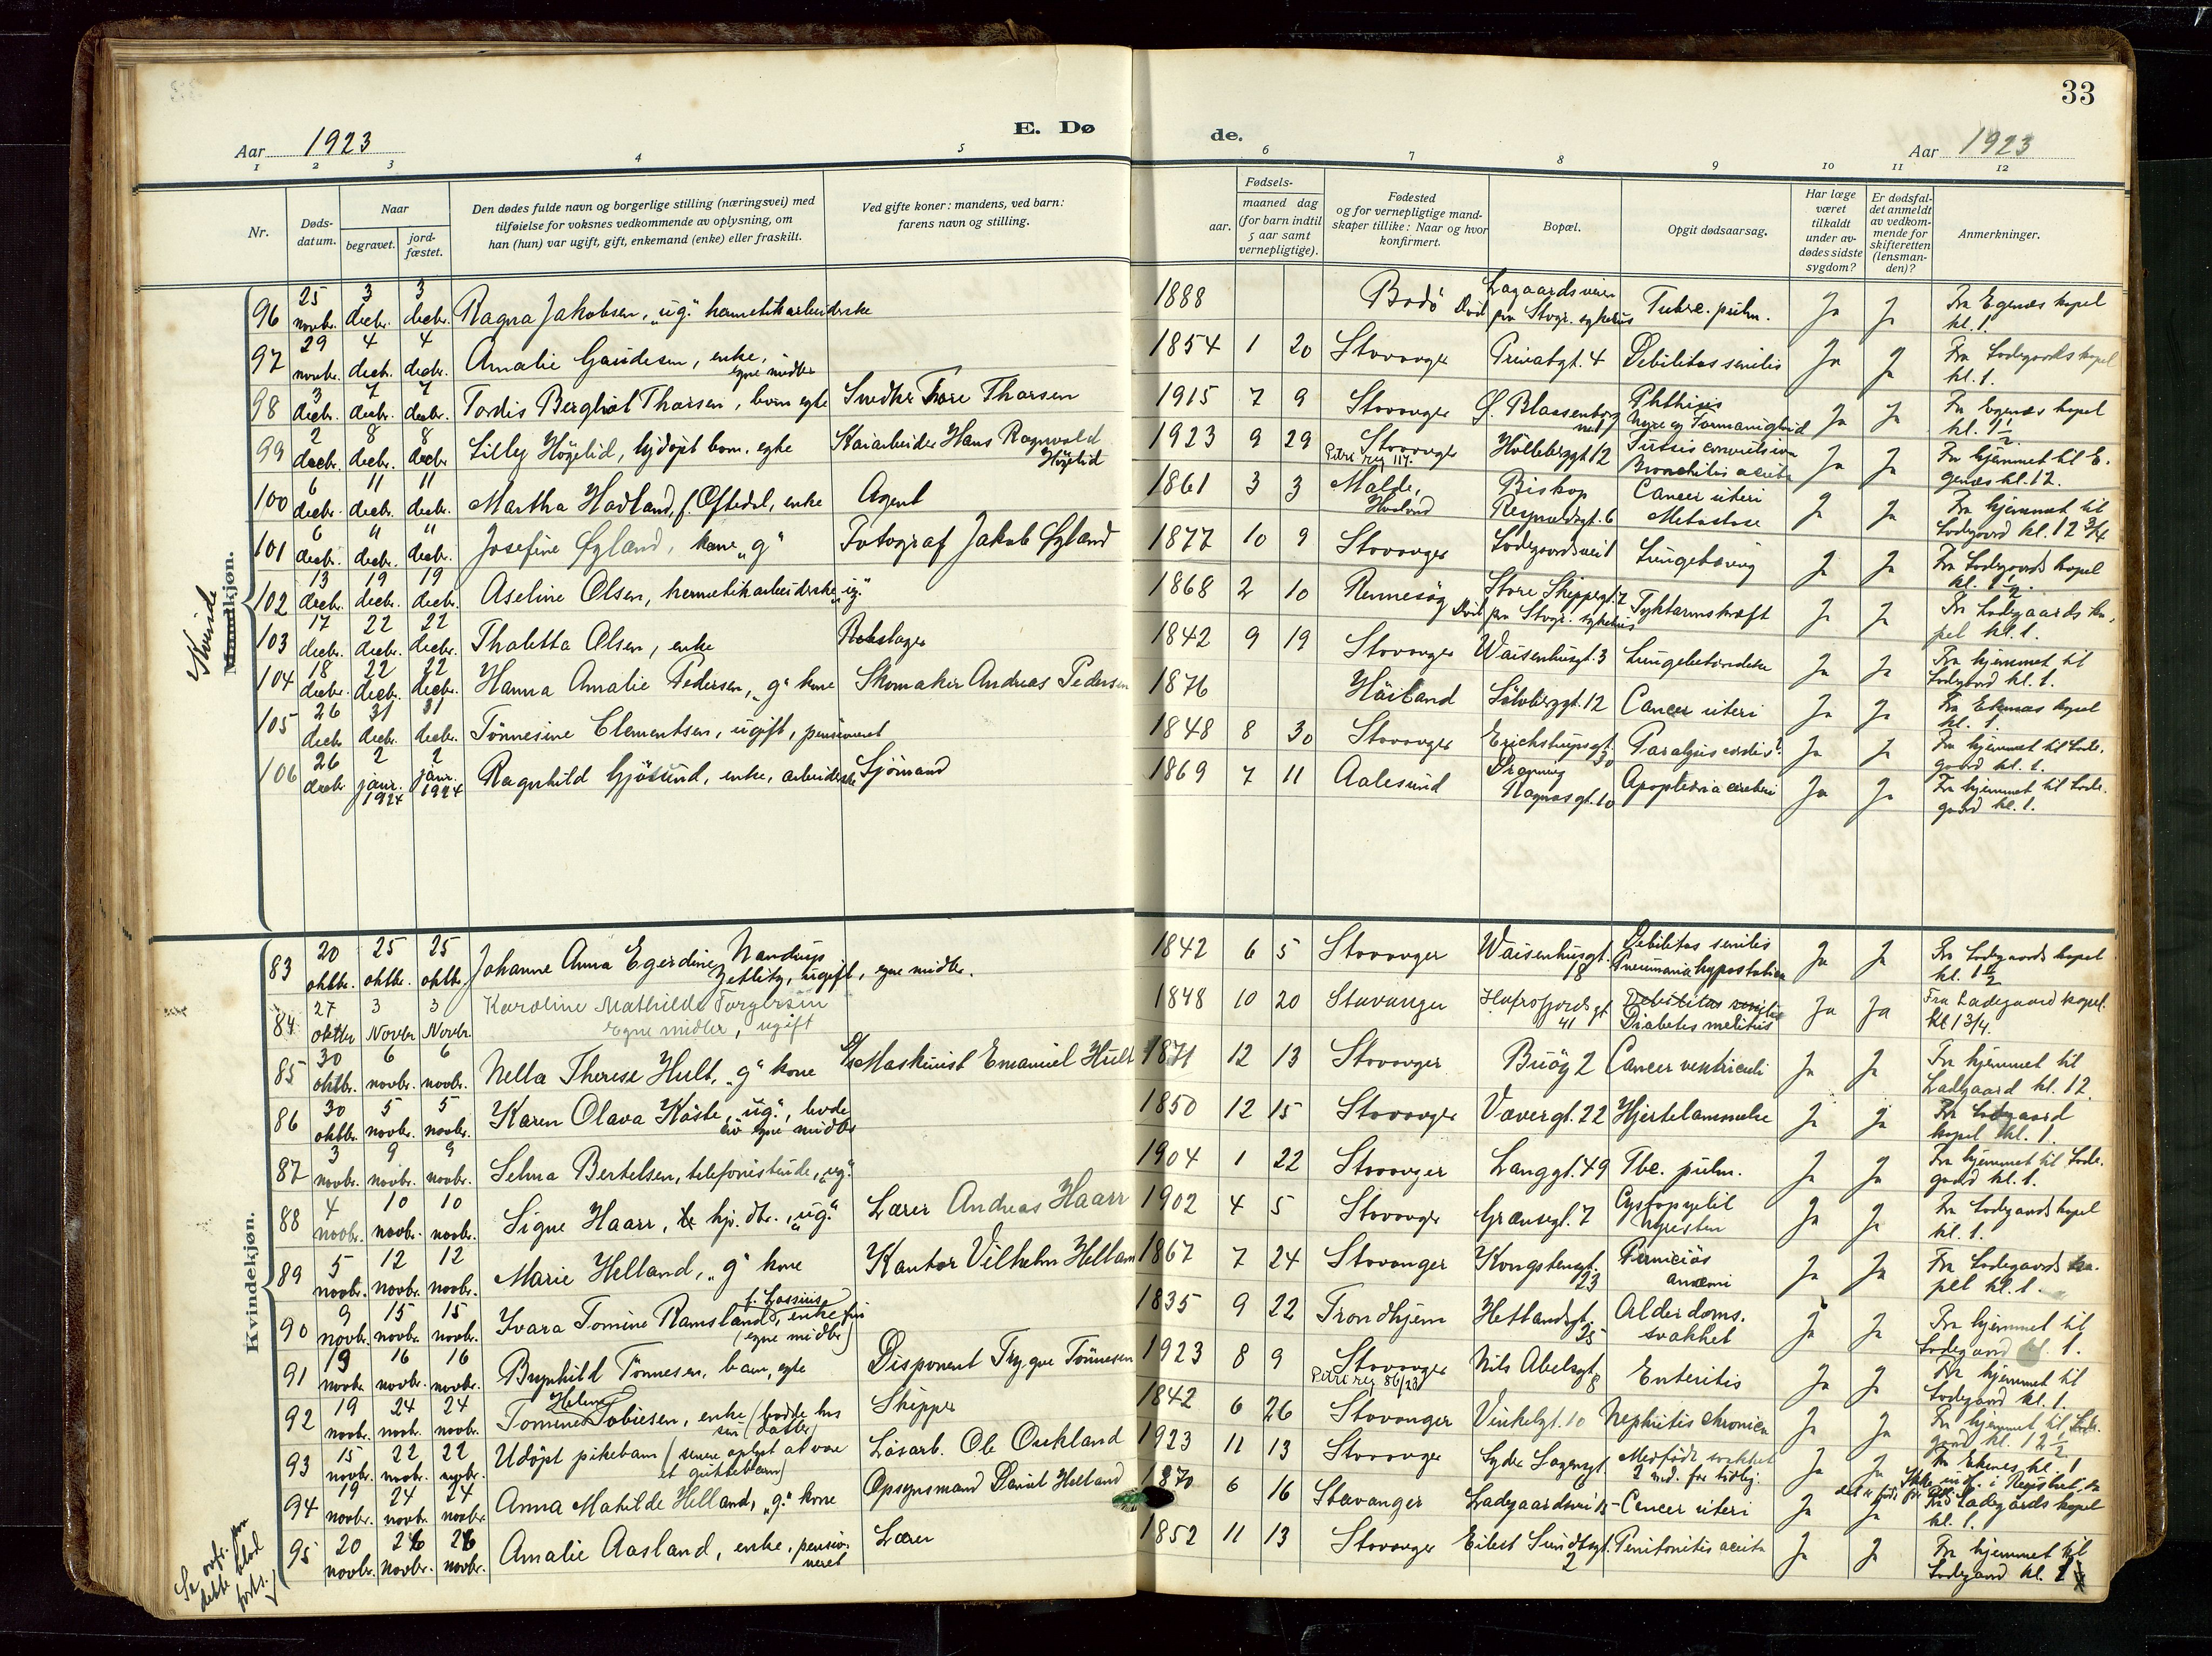 33
Aar 1923
E. Dø de.
Aar 1923
1 2 3 4 5 6 7 8 9 10 11 12
Nr.
Døds-
datum.
Naar
begravet.
jord-
fæstet.
Den dødes fulde navn og borgerlige stilling (næringsvei) med
tilføielse for voksnes vedkommende av oplysning, om
han (hun) var ugift, gift, enkemand (enke) eller fraskilt.
Ved gifte koner: mandens, ved barn:
farens navn og stilling.
Fødsels-
aar. maaned dag
(for barn indtil
5 aar samt
vernepligtige).
Fødested
og for vernepligtige mand-
skaper tillike: Naar og hvor
konfirmert.
Bopæl.
Opgit dødsaarsag.
Har læge
været
tilkaldt
under av-
dødes sidste
sygdom?
Er dødsfal-
det anmeldt
av vedkom-
mende for
skifteretten
(lensman-
den)?
Anmerkninger.
Kvinde
Mandkjøn.
96 25 novbr. 3 decbr. 3 decbr. Ragna Jakobsen, "ug." hermetikarbeiderske 1888 Bodö Lagaardsveien Død paa Stvgr. sykehus Tuberc. pulm. Ja Ja Fra Egenæs kapel
kl. 1.
97 29 novbr. 4 decbr. 4 decbr. Amalie Gaudesen, enke, egne midler 1854 1 20 Stavanger Privatgt. 4 Debilitas senilis Ja Ja Fra Ladegaards kapel
kl. 1.
98 3 decbr. 7 decbr. 7 decbr. Tordis Bergliot Thorsen, barn egte Snedker Tore Thorsen 1915 7 9 Stavanger Ø. Blaasenborg Phthisis Ja Ja Fra Egenæs kapel
kl. 1½
99 2 decbr. 8 decbr. 8 decbr. Lilly Högelid, hjdøpt barn, egte Kaiarbeider Hans Ragnvald Högelid 1923 9 29 Stavanger Petri reg 117. Holbergsgt 12 Tussis convulsiva Bronchitis acuta Ja Ja Fra hjemmet til E-
genæs kl. 12.
100 6 decbr. 11 decbr. 11 decbr. Martha Hadland, f. Oftedal, enke Agent 1861 3 3 Malde, Haaland Biskop Reynaldsgt. 6 Cancer uteri Metastase Ja Ja Fra hjemmet til
Ladegaard kl. 12 3/4
101 6 decbr. " decbr. " decbr. Josefine Øgland, kone "g" Fotograf Jakob Øgland 1877 10 9 Stavanger Ladegaardsvei 1 Ja Ja Fra Ladegaards kapel
kl. 1½.
102 13 decbr. 19 decbr. 19 decbr. Aseline Olsen, hermetikarbeiderske "ug." 1868 2 10 Rennesøy Store Skippergt. 2 Død paa Stvgr. sykehus Tyktarmskræft Ja Ja Fra Ladegaards ka-
pel kl. 1.
103 17 decbr. 22 decbr. 22 decbr. Thaletta Olsen, enke Rebslager 1842 9 19 Stavanger Waisenhusgt. 3 Lungebetændelse Ja Ja Fra hjemmet til
Ladegaard kl. 1.
104 18 decbr. 22 decbr. 22 decbr. Hanna Amalie Pedersen, "g" kone Skomaker Andreas Pedersen 1876 Höiland Sölvberggt. 12 Cancer uteri Ja Ja Fra Ekenæs kapel
kl. 1
105 26 decbr 31 decbr. 31 decbr. Tönnesine Clementsen, ugift, pensioneret 1848 8 30 Stavanger Erichstrupsgt. 30 Paralysis cordis Ja Ja Fra hjemmet til Lade-
gaard kl. 1.
106 26 decbr 2 janr. 1924 2 janr. 1924 Ragnhild Gjösund, enke, arbeiderske Sjömand 1869 7 11 Aalesund Dronning Dagnasgt. 10 Apoplexia cerebri Ja Ja Fra hjemmet til Lade-
gaard kl. 1.
Kvindekjøn.
83 20 oktbr. 25 oktbr. 25 oktbr. Johanne Anna Egerdine Nandrup Zetlitz, ugift, egne midler. 1842 6 5 Stavanger Waisenhusgt. 18 Debilitas senilis Pneumonia hypostatica Ja Ja Fra Ladegaards kapel
kl. 1½
84 27 oktbr 3 Novbr 3 Novbr Karoline Mathilde Torgersen Egne midler, ugift 1848 10 20 Stavanger Hafrsfjords gt 41 Debilitas senilis Diabetes melitus Ja Ja Fra Ladegaard kapel.
kl 1 3/4.
85 30 oktbr. 6 novbr. 6 novbr. Nella Therese Hult, "g" kone Maskinist Emanuel Hult 1871 12 13 Stavanger Buöy 2 Cancer ventriculi Ja Ja Fra hjemmet til
Ladgaard kl. 12.
86 30 oktbr. 5 novbr. 5 novbr. Karen Olava Kaste, "ug.", levde av egne midler 1850 12 15 Stavanger Vævergt. 22 Hjertelammelse Ja Ja Fra Ladgaard
kapel kl. 1.
87 3 novbr. 9 novbr. 9 novbr. Selma Bertelsen, telefonistinde, "ug." 1904 1 22 Stavanger Langgt. 49 Tbc. pulm. Ja Ja Fra hjemmet til Lade-
gaard kl. 1.
88 4 novbr. 10 novbr. 10 novbr. Signe Haarr, hj. dtr. "ug." Lærer Andreas Haarr 1902 4 5 Stavanger Grænsegt. 7 Cystopyelit Nyresten Ja Ja Fra Ladegaards kapel
kl. 1.
89 5 novbr. 12 novbr. 12 novbr. Marie Helland, "g" kone Kantor Vilhelm Helland 1867 7 24 Stavanger Kongstensgt. 23 Perniciøs anæmi Ja Ja Fra Ladegaards ka-
pel kl. 1.
90 9 novbr. 15 novbr. 15 novbr. Yvara Tomine Ramsland, f. Lassius, enkefru (egne midler) 1835 9 22 Trondhjem Hetlandsgt. 25 Alderdoms-
svakhet Ja Ja Fra hjemmet til
Ladegaard kl. 1.
91 13 novbr. 16 novbr. 16 novbr. Brynhild Tönnesen, barn, egte Disponent Trygve Tönnesen 1923 8 9 Stavanger Petri reg 86/23 Nils Abelsgt 8 Enteritis Ja Ja Fra hjemmet til
Ladegaard kl. 1.
92 19 novbr. 24 novbr. 24 novbr. Tomine Helene Tobiesen, enke (bodde hos sin datter) Skipper 1842 6 26 Stavanger Vinkelgt. 10 Nephritis chronica Ja Ja Fra hjemmet til Lade-
gaard kl. 12½
93 15 novbr. 22 novbr. 22 novbr. Udöpt pikebarn (senere oplyst at være et guttebarn) Løsarb. Ole Aukland 1923 11 13 Stavanger Medfødt svakhet 2 md. for tidlig Ja Ja Fra Ekenes kl. 1
94 19 novbr. 24 novbr. 24 novbr. Anna Mathilde Helland, "g." kone Opsynsmand Daniel Helland 1870 6 16 Stavanger Ladegaardsvei 15 Cancer uteri Ja Ja Fra Ladegaards kapel
kl. 1.
95 20 novbr. 26 novbr. 26 novbr. Amalie Aasland, enke, pensio-
neret Lærer 1852 11 13 Stavanger Eilert Sundtsgt. 2 Peritonitis acuta Ja Ja Fra hjemmet til
Ladegaard kl. 1
Se ovfr. paa
dette blad
forts.